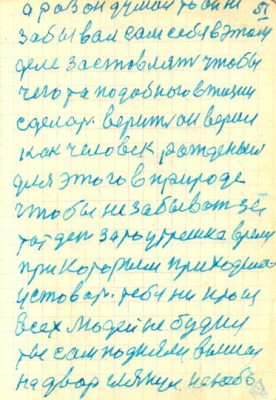 а раз он думал то он не 51
забывал сам себя в этом
деле заставлят чтобы
чего та подобного втиши
сделат. верит он верил
как человек рожденыи
для этого в природе
чтобы не забыват за
тот ден за то утрешка время
при котором приходица
устоват. тебя ни кто и
всех людей не будил
ты сам поднялся вышел
на двор глянул не небо